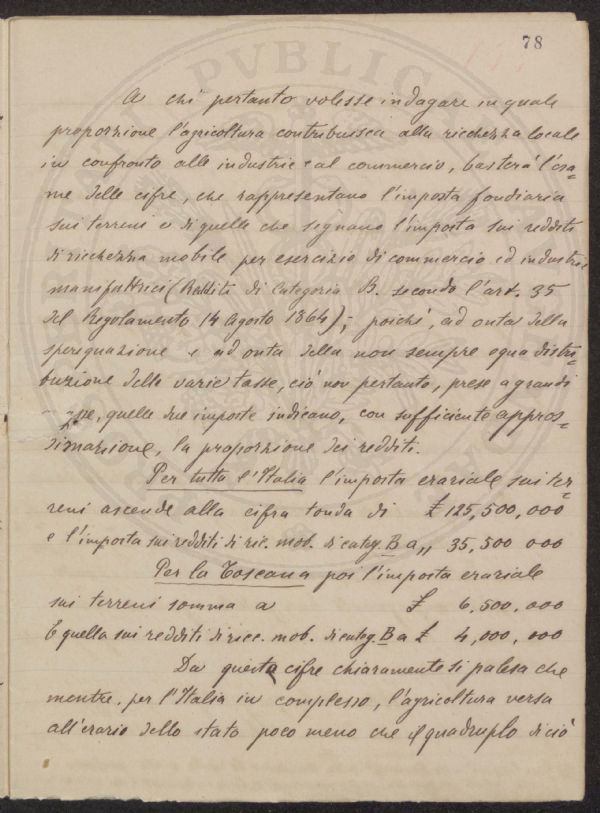 78
A chi pertanto volesse indagare in quale
proporzione l'agricoltura contribuisca alla ricchezza locale
in confronto alle industrie e al commercio, basterà l'esa-
me delle cifre, che rappresentano l'imposta fondiaria
sui terreni e di quelle che segnano l'imposta sui redditi
di ricchezza mobile per esercizio di commercio ed industrie
manifattrici (Redditi di Categoria B. secondo l'art. 35
del Regolamento 14 Agosto 1864); poichè, ad onta della
sperequazione e ad onta della non sempre equa distri-
buzione delle varie tasse, ciò non pertanto, prese a grandi
quelle due imposte indicano, con sufficiente appros-
simazione, la proporzione dei redditi.
Per tutta l'Italia l'imposta erariale sui ter-
reni ascende alla cifra tonda di £ 125,500,000
e l'imposta sui redditi di ric. mob. di categ. B a „ 35,500 000
Per la Toscana poi l'imposta erariale
sui terreni somma a £ 6,500,000
E quella sui redditi di ricc. mob. di categ. B a £ 4,000,000
Da queste cifre chiaramente si palesa che
mentre, per l'Italia in complesso, l'agricoltura versa
all'erario dello stato poco meno che il quadruplo di ciò